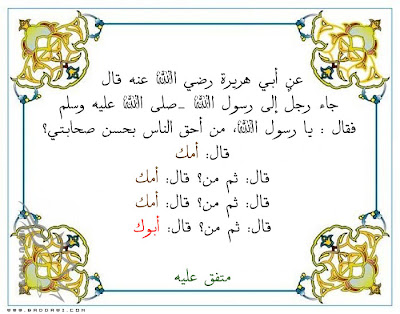 عن أبي هريرة رضي الله عنه قال
جاء رجل إلى رسول الله -صلى الله عليه وسلم
فقال : يا رسول الله، من أحق الناس بحسن صحابتي؟
قال: أمك
قال: ثم من؟ قال: أمك
قال: ثم من؟ قال: أمك
قال: ثم من؟ قال: أبوك
متفق عليه